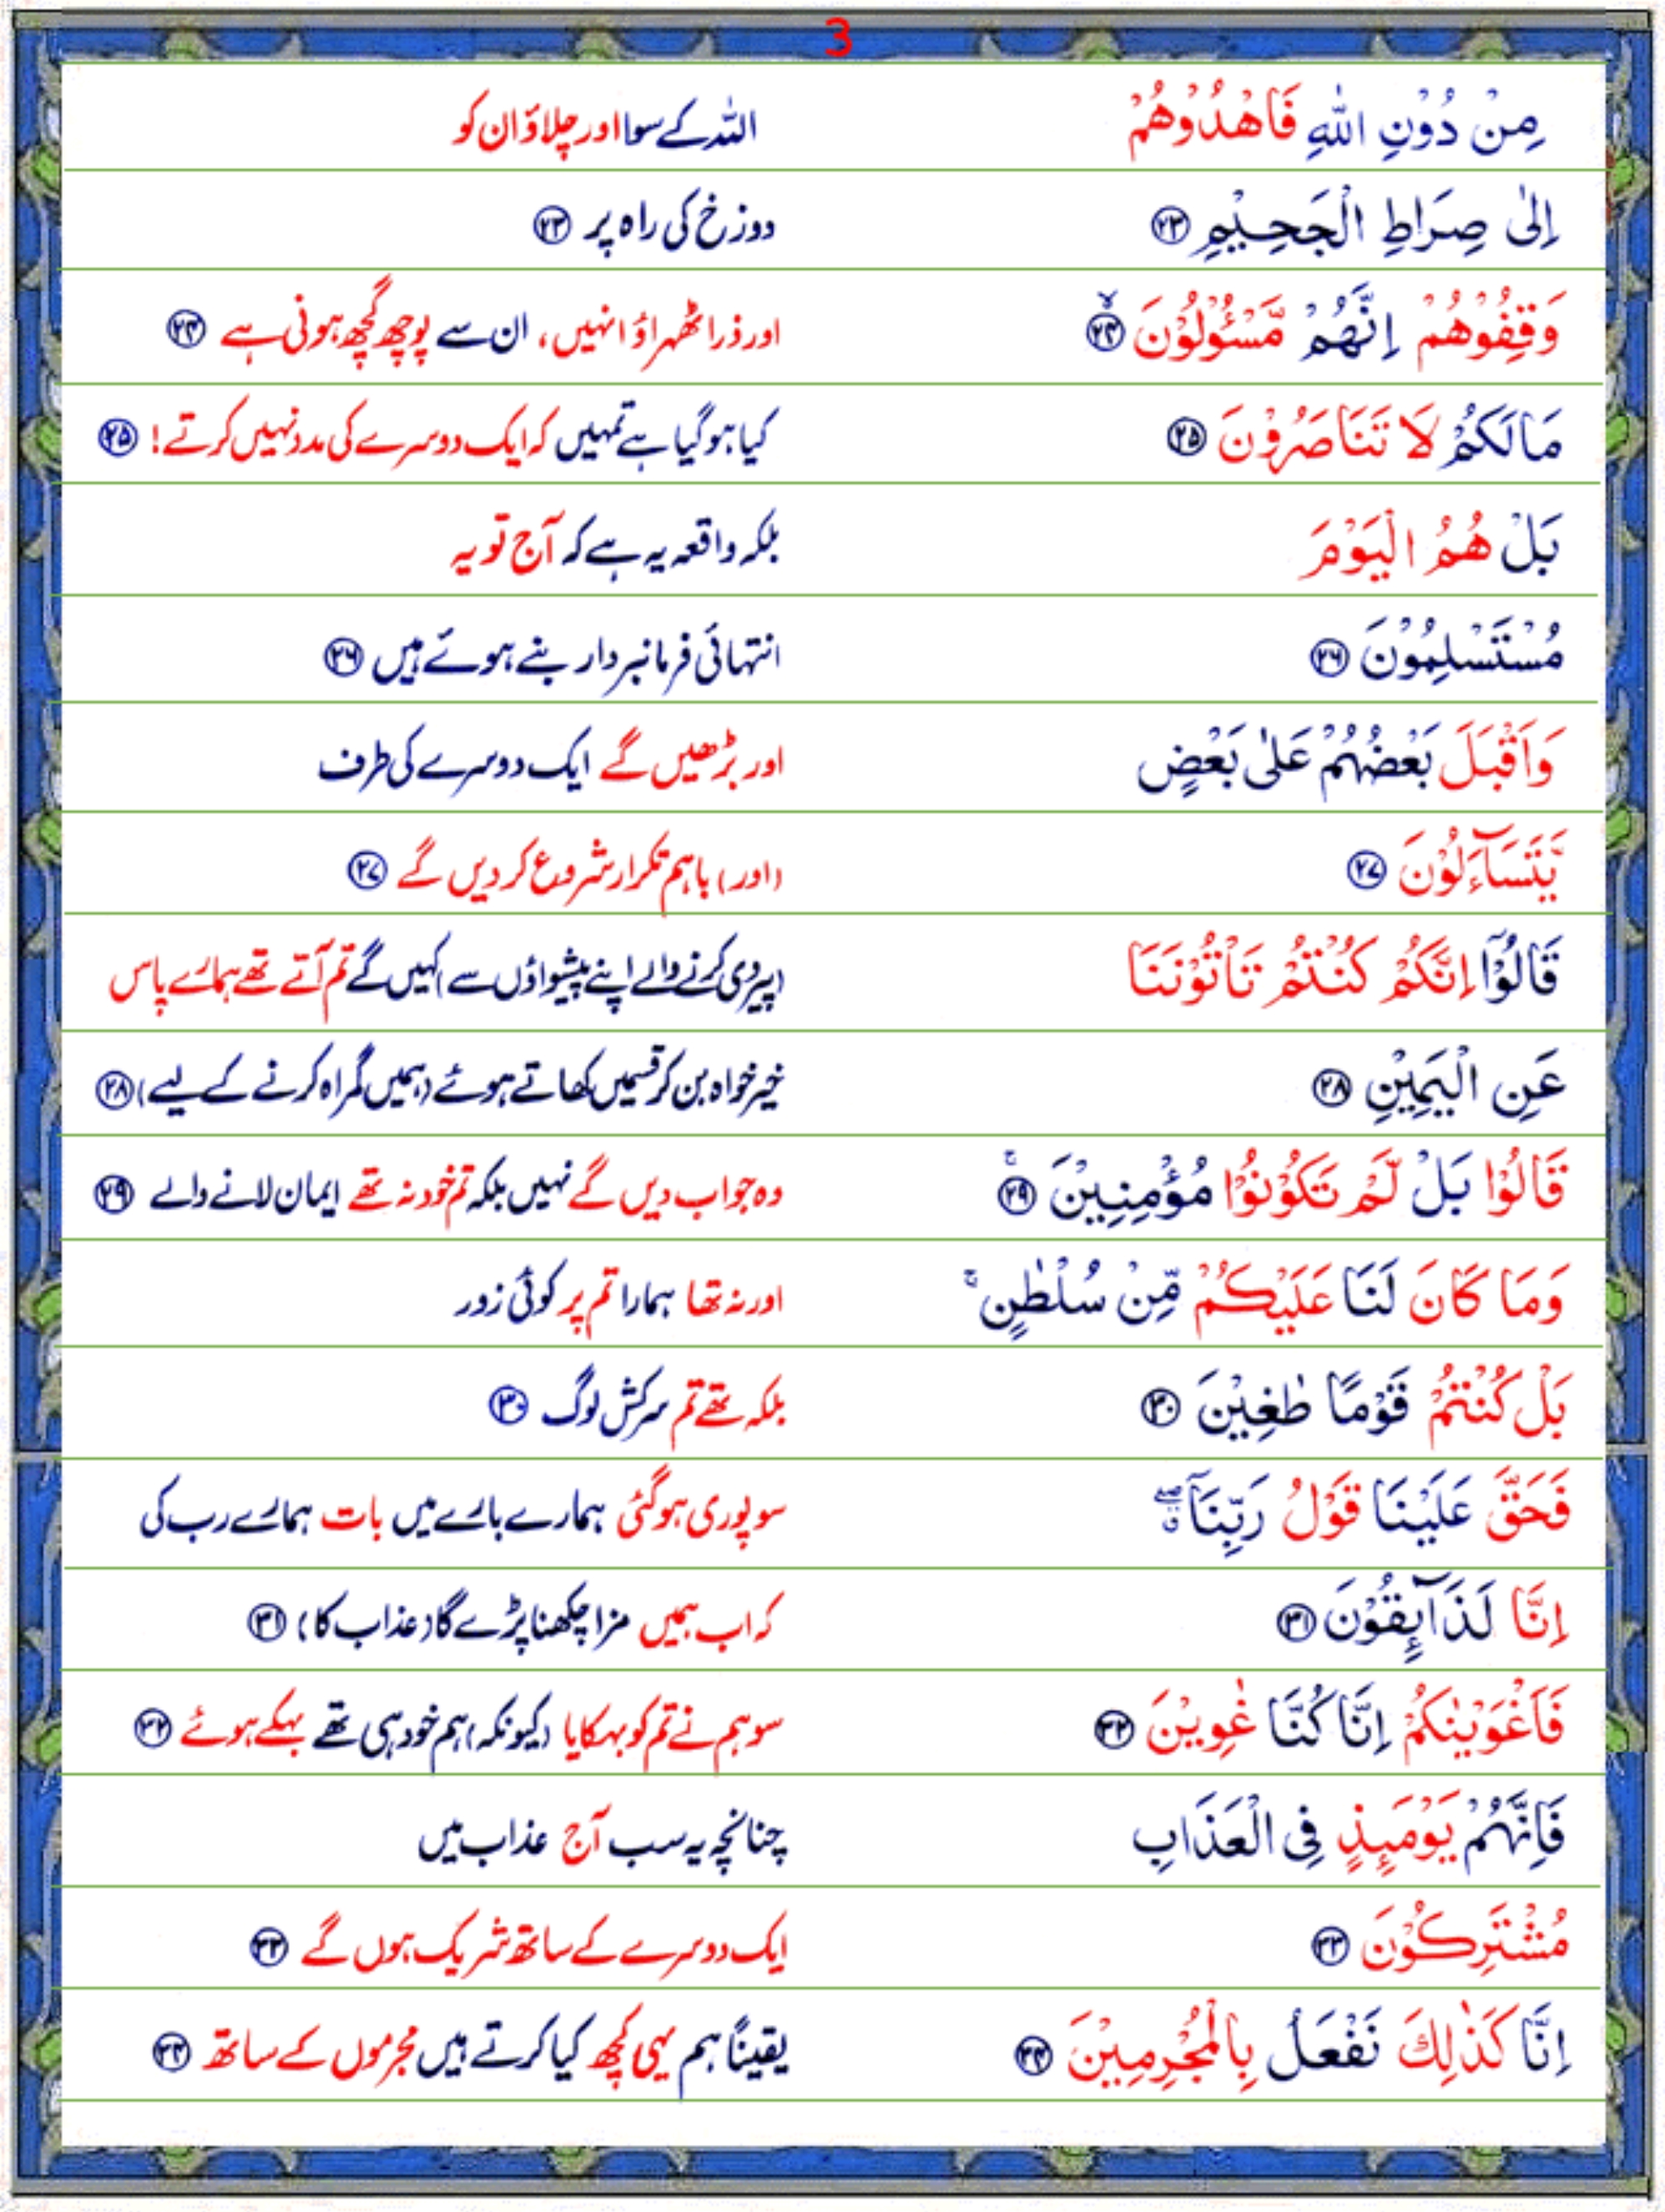 3
مِنْ دُوْنِ اللّٰهِ فَاهْدُوْهُمْ اللہ کے سوا اور چلاؤ ان کو
اِلٰى صِرَاطِ الْجَحِيْمِ ۲۳ دوزخ کی راہ پر ۲۳
وَقِفُوْهُمْ اِنَّهُمْ مَّسْـُٔوْلُوْنَ ۲۴ اور ذرا ٹھہراؤ انہیں، ان سے پوچھ گچھ ہونی ہے ۲۴
مَا لَكُمْ لَا تَنَاصَرُوْنَ ۲۵ کیا ہو گیا ہے تمہیں کہ ایک دوسرے کی مدد نہیں کرتے! ۲۵
بَلْ هُمُ الْيَوْمَ بلکہ واقعہ یہ ہے کہ آج تو یہ
مُسْتَسْلِمُوْنَ ۲۶ انتہائی فرمانبردار بنے ہوئے ہیں ۲۶
وَاَقْبَلَ بَعْضُهُمْ عَلٰى بَعْضٍ اور بڑھیں گے ایک دوسرے کی طرف
يَّتَسَآءَلُوْنَ ۲۷ (اور) باہم تکرار شروع کر دیں گے ۲۷
قَالُوْٓا اِنَّكُمْ كُنْتُمْ تَاْتُوْنَنَا (پیروی کرنے والے اپنے پیشواؤں سے) کہیں گے تم آتے تھے ہمارے پاس
عَنِ الْيَمِيْنِ ۲۸ خیر خواہ بن کر قسمیں کھاتے ہوئے (ہمیں گمراہ کرنے کے لیے) ۲۸
قَالُوْا بَلْ لَّمْ تَكُوْنُوْا مُؤْمِنِيْنَ ۚ ۲۹ وہ جواب دیں گے نہیں بلکہ تم خود نہ تھے ایمان لانے والے ۲۹
وَمَا كَانَ لَنَا عَلَيْكُمْ مِّنْ سُلْطٰنٍ ۚ اور نہ تھا ہمارا تم پر کوئی زور
بَلْ كُنْتُمْ قَوْمًا طٰغِيْنَ ۳۰ بلکہ تھے تم سرکش لوگ ۳۰
فَحَقَّ عَلَيْنَا قَوْلُ رَبِّنَآ ۖ سو پوری ہو گئی ہمارے بارے میں بات ہمارے رب کی
اِنَّا لَذَآىِٕقُوْنَ ۳۱ کہ اب ہمیں مزا چکھنا پڑے گا (عذاب کا) ۳۱
فَاَغْوَيْنٰكُمْ اِنَّا كُنَّا غٰوِيْنَ ۳۲ سو ہم نے تم کو بہکایا (کیونکہ) ہم خود ہی تھے بہکے ہوئے ۳۲
فَاِنَّهُمْ يَوْمَىِٕذٍ فِى الْعَذَابِ چنانچہ یہ سب آج عذاب میں
مُشْتَرِكُوْنَ ۳۳ ایک دوسرے کے ساتھ شریک ہوں گے ۳۳
اِنَّا كَذٰلِكَ نَفْعَلُ بِالْمُجْرِمِيْنَ ۳۴ یقیناً ہم یہی کچھ کیا کرتے ہیں مجرموں کے ساتھ ۳۴